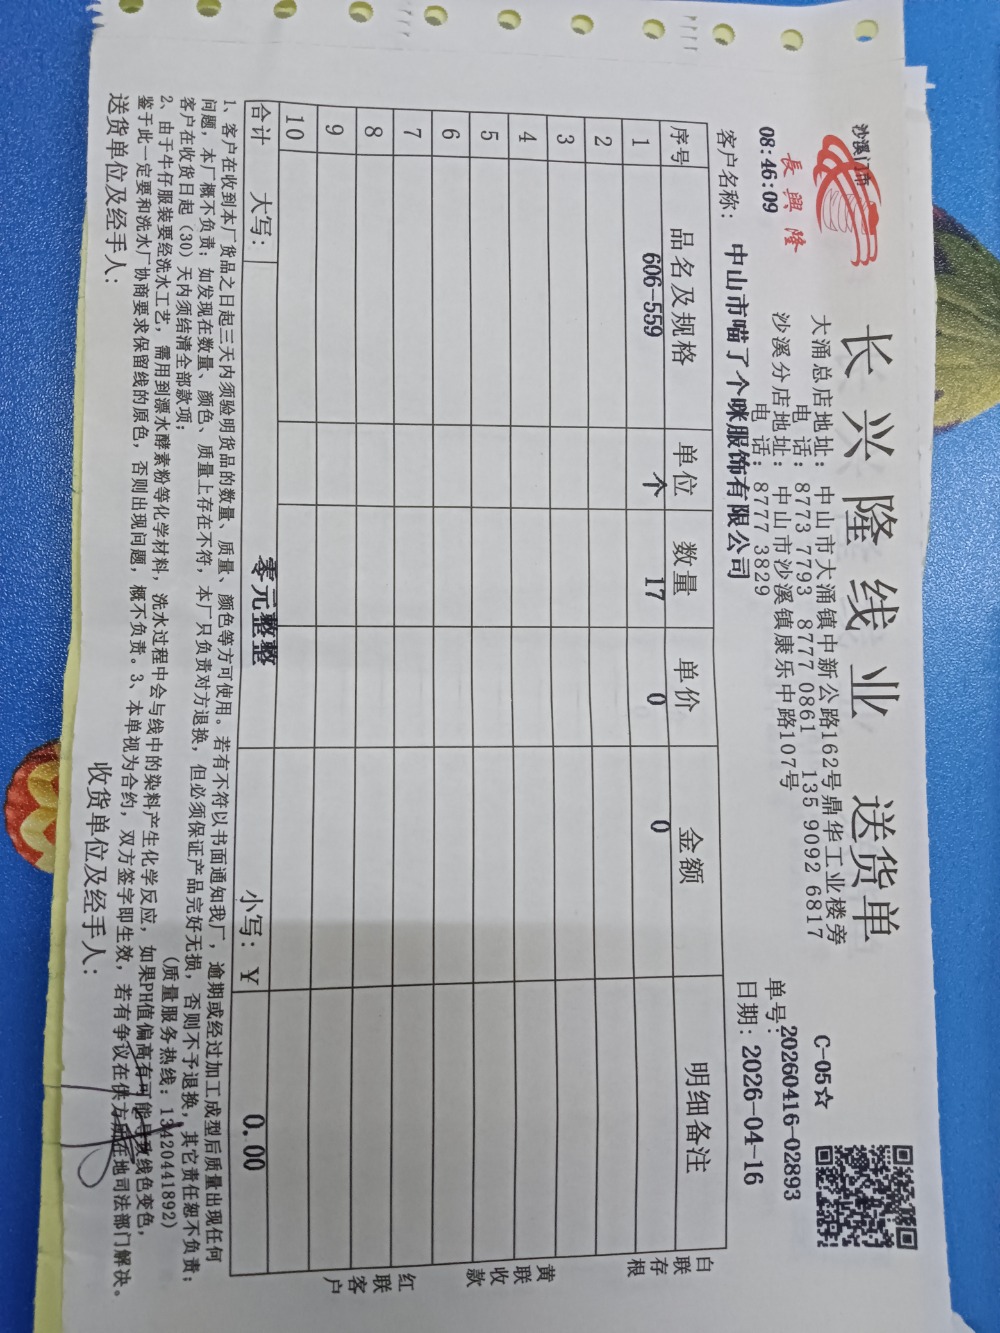 沙溪门市
長興隆
08:46:09
长兴隆线业 送货单
大涌总店地址：中山市大涌镇中新公路162号鼎华工业楼旁
电 话：8773 7793 8777 0861 135 9092 6817
沙溪分店地址：中山市沙溪镇康乐中路107号
电 话：8777 3829
C-05☆
单号：20260416-02893
客户名称：中山市喵了个咪服饰有限公司
日期：2026-04-16
序号 品名及规格 单位 数量 单价 金额 明细备注
1 606-559 个 17 0 0
2
3
4
5
6
7
8
9
10
合计 大写：零元整整 小写：¥ 0.00
白联存根
黄联收款
红联客户
1、客户在收到本厂货品之日起三天内须验明货品的数量、质量、颜色等方可使用。若有不符以书面通知我厂，逾期或经过加工成型后质量出现任何
问题，本厂概不负责；如发现在数量、颜色、质量上存在不符，本厂只负责对方退换，但必须保证产品完好无损，否则不予退换，其它责任恕不负责；
客户在收货日起（30）天内须结清全部款项；（质量服务热线：13420441892）
2、由于牛仔服装要经洗水工艺，需用到漂水酵素粉等化学材料，洗水过程中会与线中的染料产生化学反应，如果PH值偏高有可能导致线色变色，
鉴于此一定要和洗水厂协商要求保留线的原色，否则出现问题，概不负责。3、本单视为合约，双方签字即生效，若有争议在供方所在地司法部门解决。
送货单位及经手人：
收货单位及经手人：